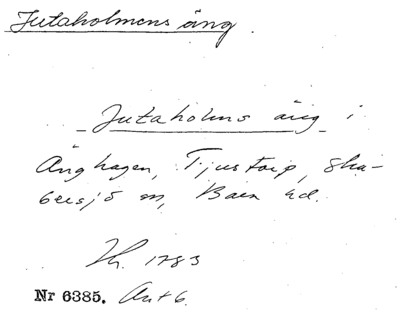 Jutaholmens äng
Jutaholms äng i
Änghagen, Tjustorp, Ska-
bersjö sn, Bara hd.
Lh. 1783
Nr 6385. Ant 6.